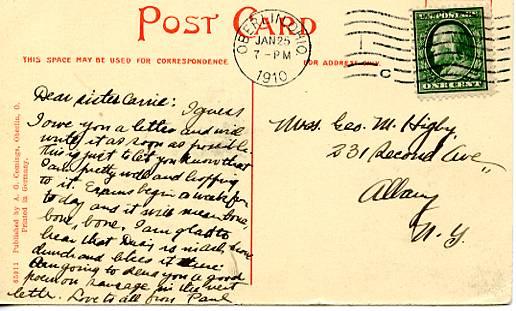 POST CARD
THIS SPACE MAY BE USED FOR CORRESPONDENCE
FOR ADDRESS ONLY.
OBERLIN, OHIO
JAN 25
7-PM
1910
C
U.S. POSTAGE
ONE CENT
65911 Published by A. G. Comings, Oberlin, O.
Printed in Germany.
Dear sister Carrie: I guess
I owe you a letter and will
write it as soon as possible
This is just to let you know that
I am pretty well and
to it. Exams begin a week from
to day and it will mean bone,
bone, bone. I am glad to
hear that
lunch and
Am going to send you a good
poem on sausage in the next
letter. Love to all from Paul
Miss. Geo. M. Higby,
231 Second Ave,
Albany
N. Y.